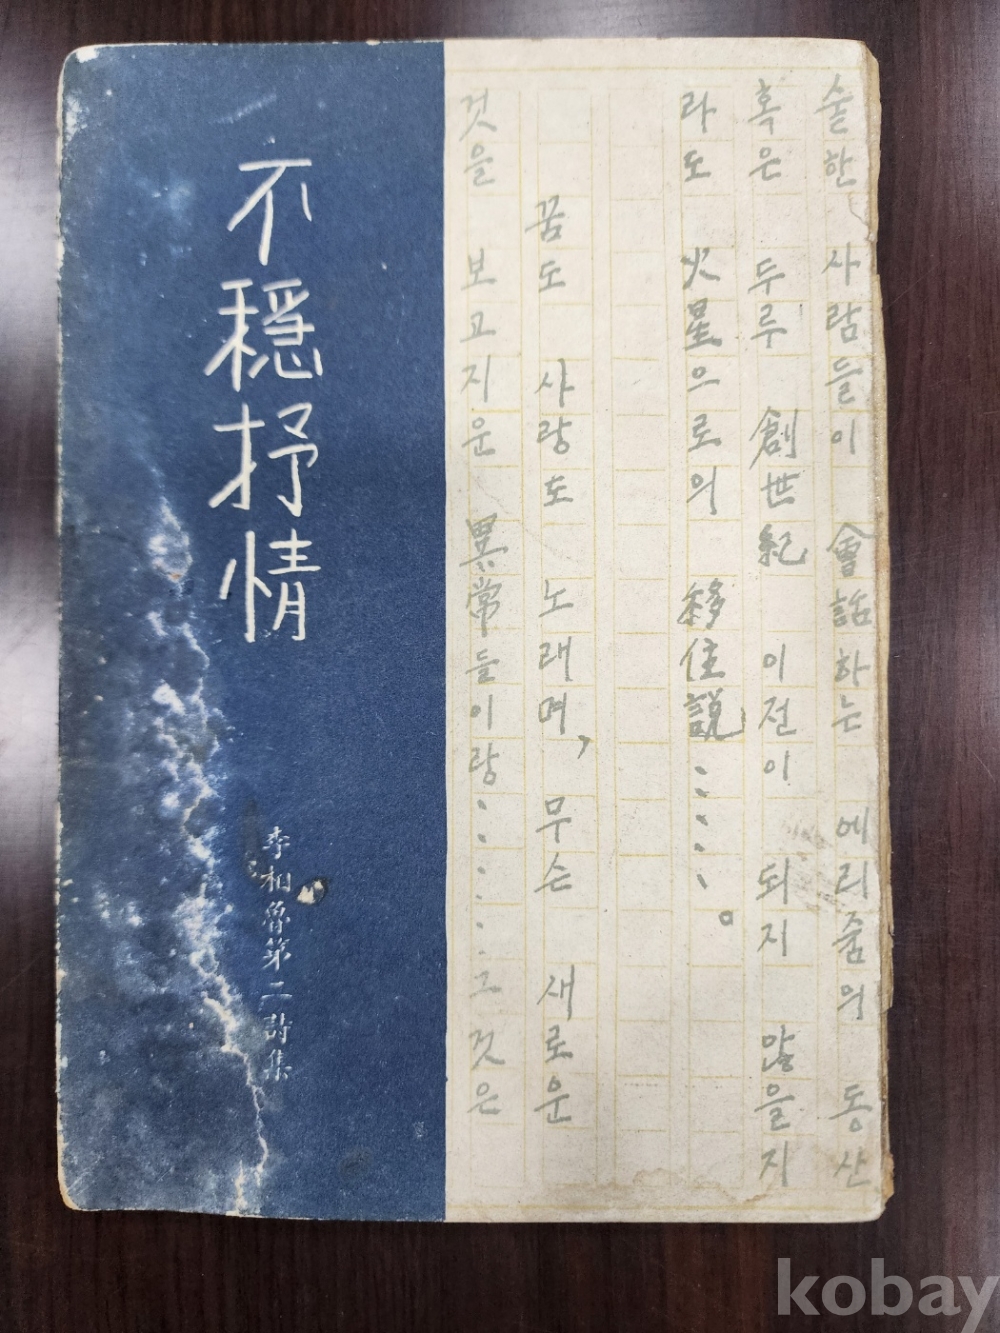 숱한 사람들이 會話하는 에리줌의 동산
혹은 두루 創世紀 이전이 되지 않을지
라도 火星으로의 移住說………。
꿈도 사랑도 노래며, 무슨 새로운
것을 보고지운 異常들이랑………그것은
不穩抒情
李相魯第二詩集
kobay